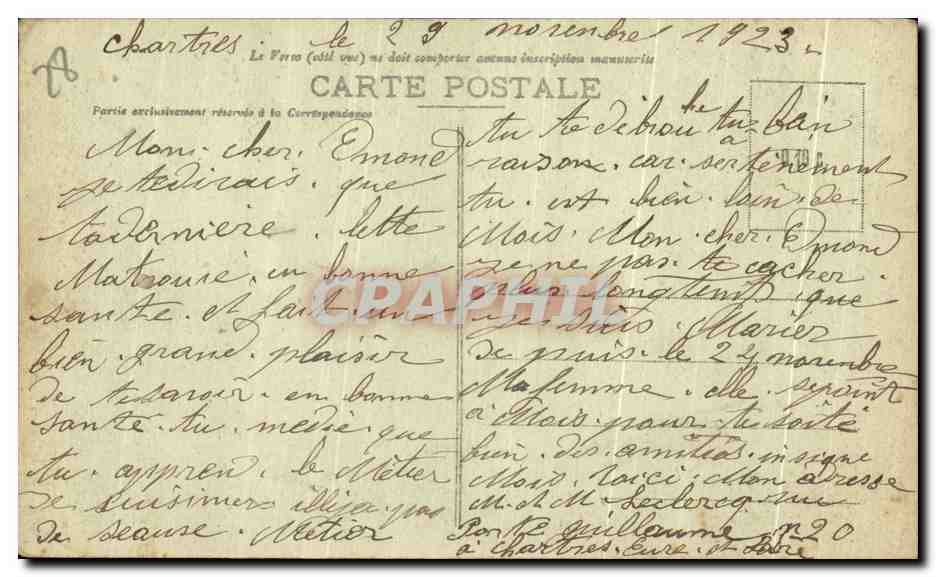 chartres. le 29 novembre 1923.
Le Verso (côté vue) ne doit comporter aucune inscription manuscrite
CARTE POSTALE
Partie exclusivement réservée à la Correspondance
Mon. cher. Emond
je te dirais. que
ta dernière. lettre
Ma trouvé. en bonne
sante. et fait. un
bien. grand. plaisir
de te savoir. en bonne
santé. tu. me die. que
tu. appren. le Métier
de cuisinier il ly a. pas
de seause. Métier
tu te débrou tu. bin
raison. car. sertènement
tu. est bien. loin. de
Mois. Mon. cher. Emond
je ne pas. te cacher.
plus. longtemps que
je suis. Marier
de puis. le 24 novembre
Ma femme. elle. se joint
à Mois. pour te soité
bien. des. amitiés. in signe
Mois. Voici. Mon adresse
M. et M. Leclercq. rue
Porte guillaume n 20
à chartres. Eure. et Loire
CRAPHIL